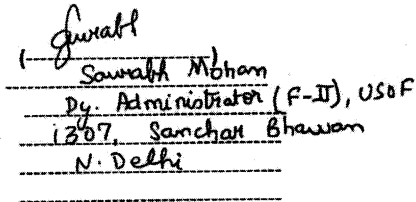 Saurabh
(          )
Saurabh Mohan
Dy. Administrator (F-II), USOF
1307, Sanchar Bhawan
N. Delhi